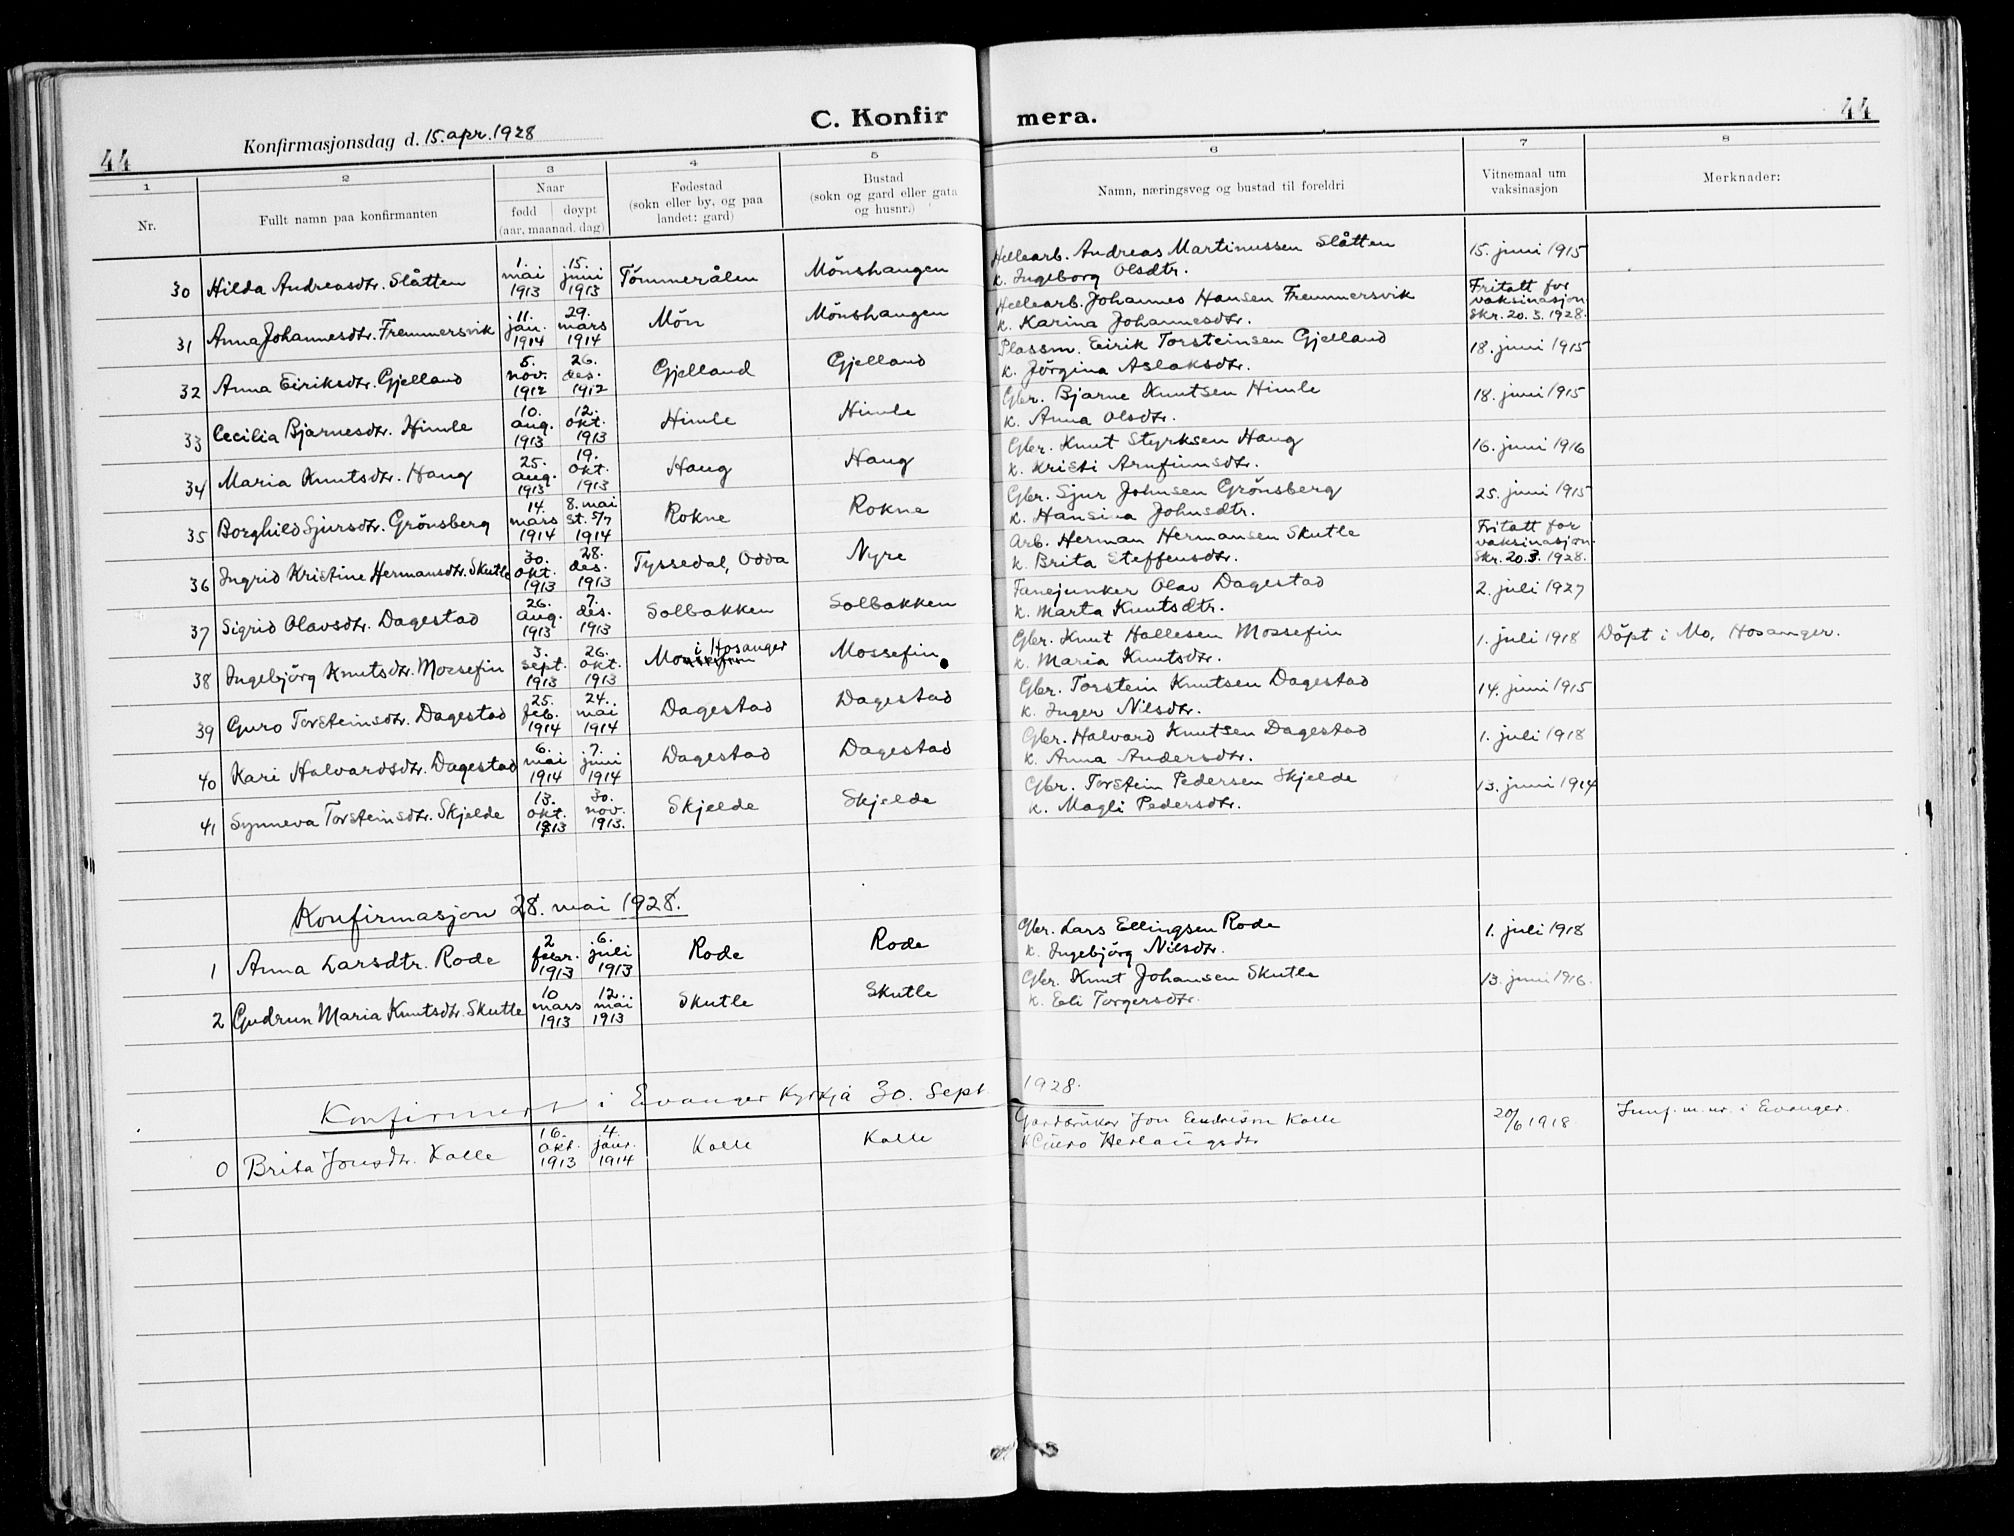 44
Konfirmasjonsdag d. 15. apr. 1928
C. Konfir
mera.
44
1 2 3 4 5 6 7 8
Nr.
Fullt namn paa konfirmanten
Naar
født | døypt
(aar, maanad, dag)
Fødestad
(sokn eller by, og paa
landet: gard)
Bustad
(sokn og gard eller gata
og husnr.)
Namn, næringsveg og bustad til foreldri
Vitnemaal um
vaksinasjon
Merknader:
30 Hilda Andreasdtr. Slåtten 1. mai 1913 15. juni 1913 Tömmerålen Mönshaugen Hellearb. Andreas Martinussen Slåtten
k. Ingeborg Olsdtr. 15. juni 1915
31 Anna Johannesdtr. Fremmersvik 11. jan. 1914 29. mars 1914 Mön Mönshaugen Hellearb. Johannes Hansen Fremmersvik
k. Karina Johannesdtr. Fritatt for vaksinasjon Skr. 20.3.1928.
32 Anna Eiriksdtr. Gjelland 5. nov. 1912 26. des. 1912 Gjelland Gjelland Plassm. Eirik Torsteinsen Gjelland
k. Jörgina Aslaksdtr. 18. juni 1915
33 Cecilia Bjarnesdtr. Himle 10. aug. 1913 12. okt. 1913 Himle Himle Gbr. Bjarne Knutsen Himle
k. Anna Olsdtr. 18. juni 1915
34 Maria Knutsdtr. Haug 25. aug. 1913 19. okt. 1913 Haug Haug Gbr. Knut Styrksen Haug
k. Kristi Arnfinnsdtr. 16. juni 1916
35 Borghild Sjursdtr. Grönsberg 14. mars 1914 8. mai st. 5/7 1914 Rokne Rokne Gbr. Sjur Johnsen Grönsberg
k. Hansina Johnsdtr. 25. juni 1915
36 Ingrid Kristine Hermansdtr. Skutle 30. okt. 1913 28. des. 1913 Tyssedal, Odda Nyre Arb. Herman Hermansen Skutle
k. Brita Steffensdtr. Fritatt for vaksinasjon. Skr. 20.3.1928.
37 Sigrid Olavsdtr. Dagestad 26. aug. 1913 7. des. 1913 Solbakken Solbakken Fanejunker Olav Dagestad
k. Marta Knutsdtr. 2. juli 1927
38 Ingebjörg Knutsdtr. Mossefin 3. sept. 1913 26. okt. 1913 Mo i Hosanger Mossefin Gbr. Knut Hallesen Mossefin
k. Maria Knutsdtr. 1. juli 1918 Döpt i Mo, Hosanger.
39 Guro Torsteinsdtr. Dagestad 25. feb. 1914 24. mai 1914 Dagestad Dagestad Gbr. Torstein Knutsen Dagestad
k. Inger Nilsdtr. 14. juni 1915
40 Kari Halvardsdtr. Dagestad 6. mai 1914 7. juni 1914 Dagestad Dagestad Gbr. Halvard Knutsen Dagestad
k. Anna Andersdtr. 1. juli 1918
41 Synneva Torsteinsdtr. Skjelde 13. okt. 1913 30. nov. 1913. Skjelde Skjelde Gbr. Torstein Pedersen Skjelde
k. Magli Pedersdtr. 13. juni 1914
Konfirmasjon 28. mai 1928.
1 Anna Larsdtr. Rode 2 febr. 1913 6. juli 1913 Rode Rode Gbr. Lars Ellingsen Rode
k. Ingebjörg Nilsdtr. 1. juli 1918
2 Gudrun Maria Knutsdtr. Skutle 10 mars 1913 12. mai 1913 Skutle Skutle Gbr. Knut Johansen Skutle
k. Eli Torgersdtr. 13. juni 1916.
Konfirmert i Evanger Kyrkja 30. Sept 1928.
0 Brita Jonsdtr. Kalle 16. okt. 1913 4. janr. 1914 Kalle Kalle Gardbrukar Jon Kalle
k Guro Herlaugsdtr 20/6 1918 m. nr. i Evanger.